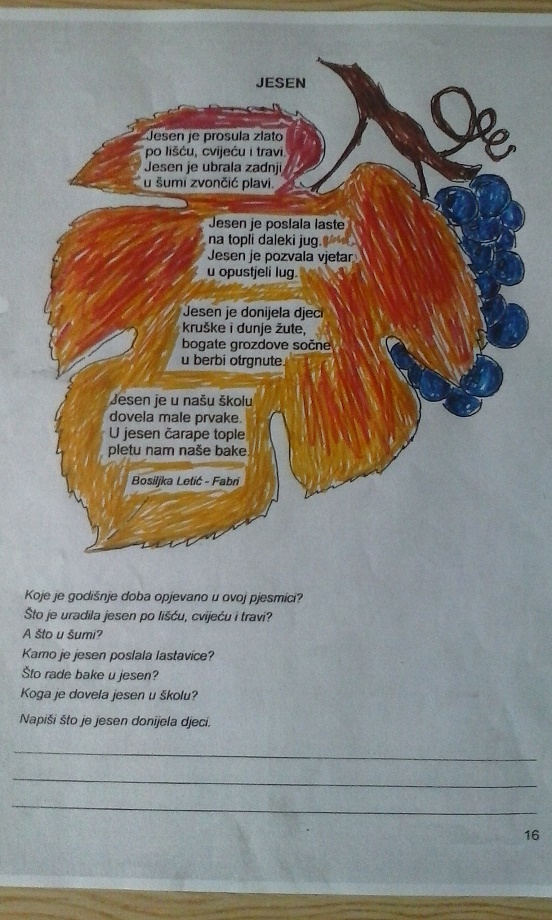 JESEN
Jesen je prosula zlato
po lišću, cvijeću i travi.
Jesen je ubrala zadnji
u šumi zvončić plavi.
Jesen je poslala laste
na topli daleki jug.
Jesen je pozvala vjetar
u opustjeli lug.
Jesen je donijela djeci
kruške i dunje žute,
bogate grozdove sočne
u berbi otrgnute.
Jesen je u našu školu
dovela male prvake.
U jesen čarape tople
pletu nam naše bake.
Bosiljka Letić - Fabri
Koje je godišnje doba opjevano u ovoj pjesmici?
Što je uradila jesen po lišću, cvijeću i travi?
A što u šumi?
Kamo je jesen poslala lastavice?
Što rade bake u jesen?
Koga je dovela jesen u školu?
Napiši što je jesen donijela djeci.
16